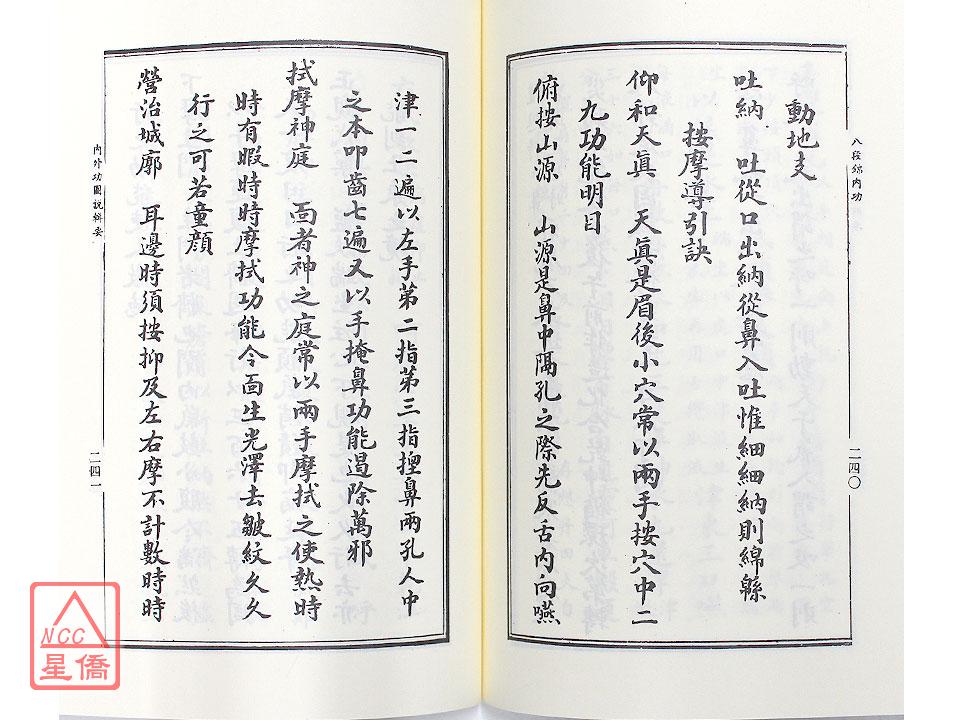 八段錦內功
二四〇
動地支
吐納　吐從口出納從鼻入吐惟細細納則綿緜
按摩導引訣
仰和天眞　天眞是眉後小穴常以兩手按穴中二
九功能明目
俯按山源　山源是鼻中隔孔之際先反舌內向嚥
津一二遍以左手第二指第三指揑鼻兩孔人中
之本叩齒七遍又以手掩鼻功能遏除萬邪
拭摩神庭　面者神之庭常以兩手摩拭之使熱時
時有暇時時摩拭功能令面生光澤去皺紋久久
行之可若童顔
營治城廓　耳邊時須按抑及左右摩不計數時時
內外功圖說輯要
二四一
NCC
星僑